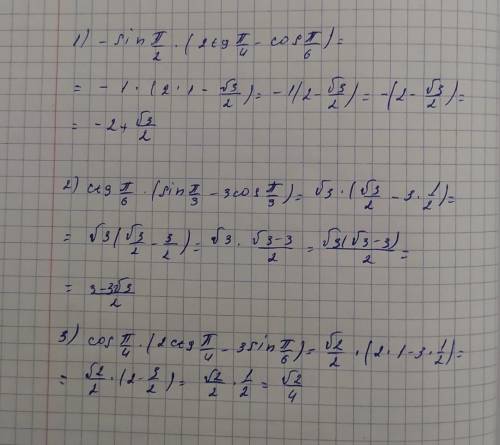 1) - sin π/2 · (2ctg π/4 - cos π/6) =
= - 1 · (2 · 1 - √3/2) = -1(2 - √3/2) = -(2 - √3/2) =
= -2 + √3/2
2) ctg π/6 · (sin π/3 - 3cos π/3) = √3 · (√3/2 - 3 · 1/2) =
= √3 (√3/2 - 3/2) = √3 · √3-3/2 = √3(√3-3)/2 =
= 3-3√3/2
3) cos π/4 · (2ctg π/4 - 3sin π/6) = √2/2 · (2 · 1 - 3 · 1/2) =
= √2/2 · (2 - 3/2) = √2/2 · 1/2 = √2/4